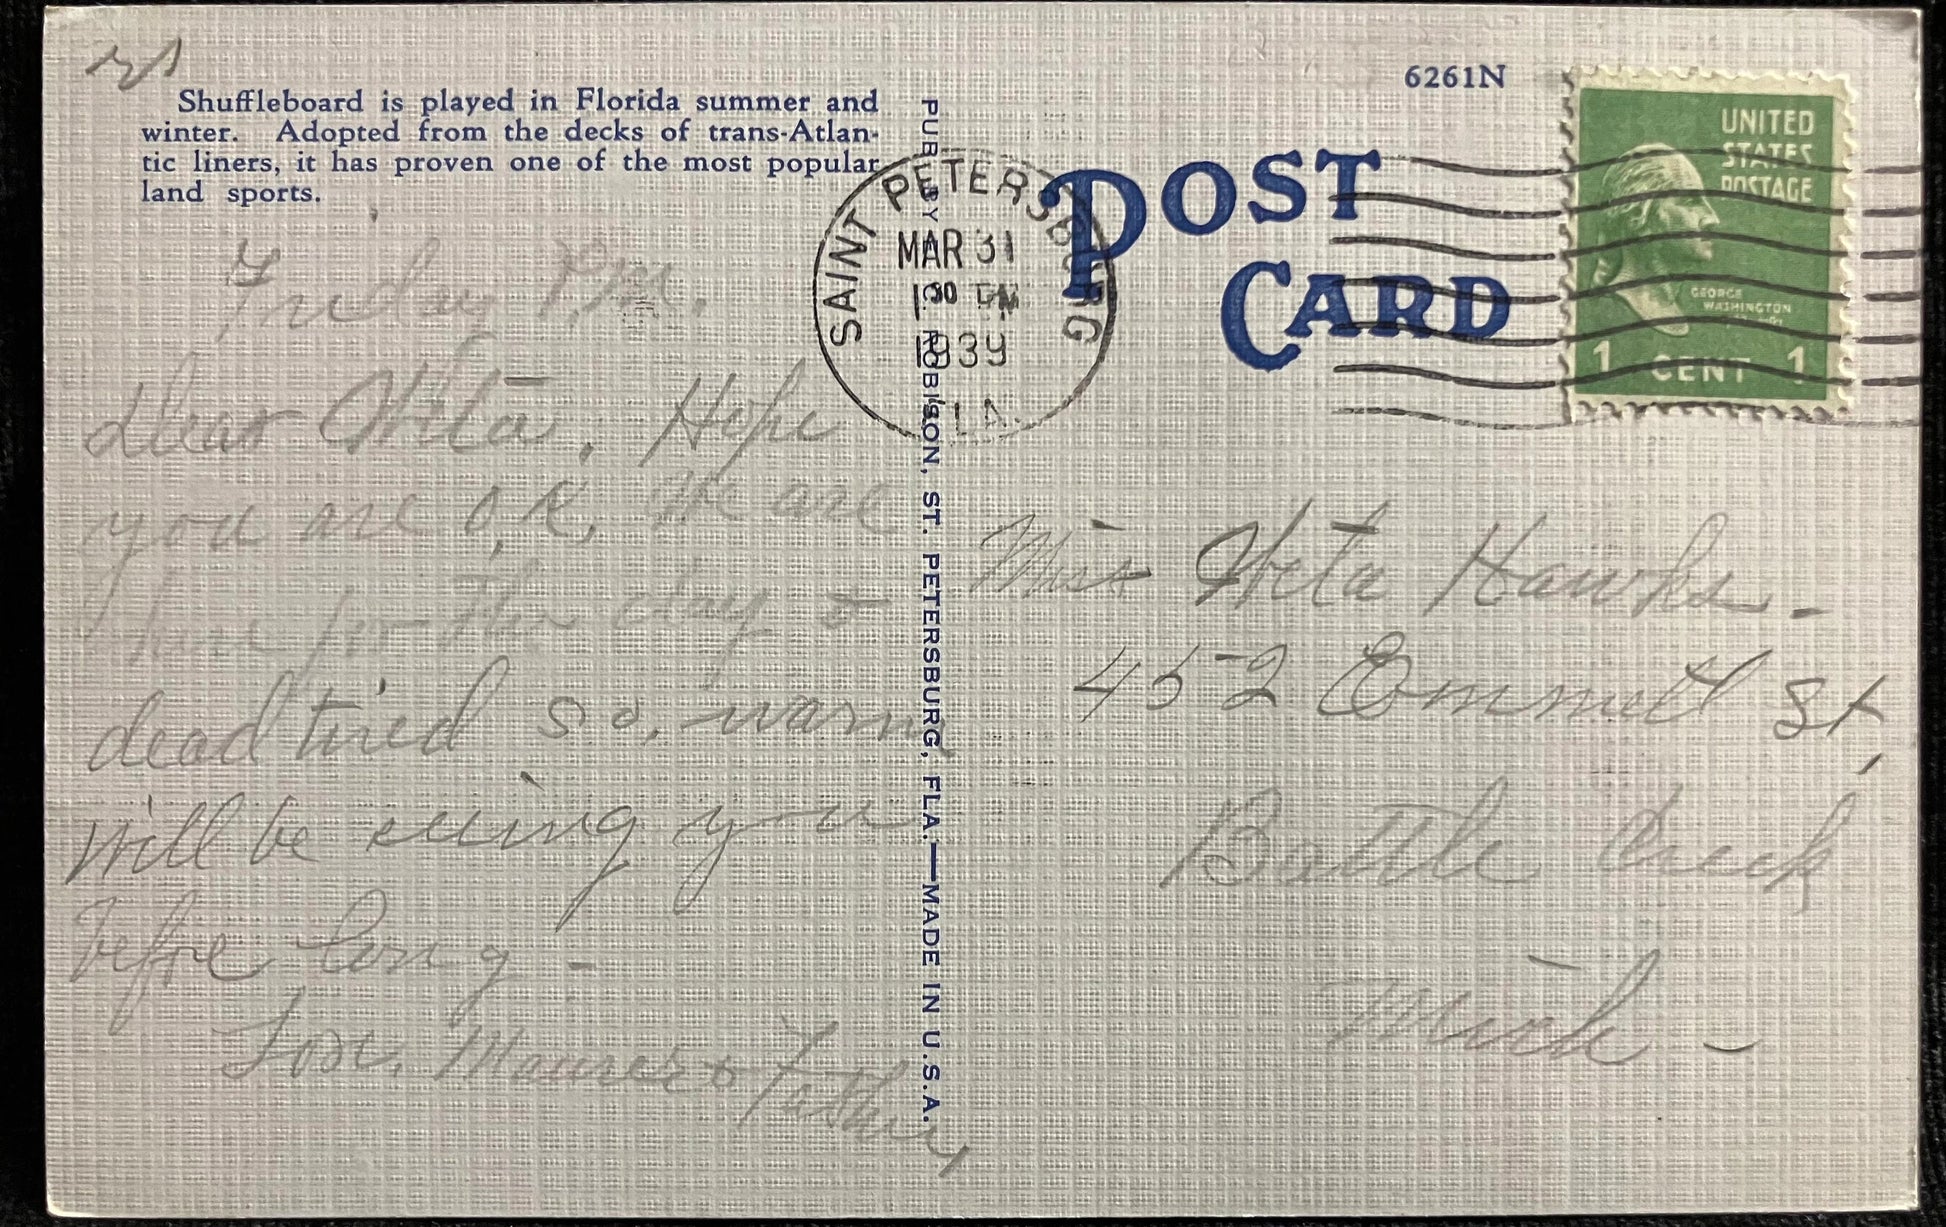 Shuffleboard is played in Florida summer and
winter. Adopted from the decks of trans-Atlan-
tic liners, it has proven one of the most popular
land sports.
Friday P.M.
Dear Weta, Hope
you are O.K, We are
here for the day &
dead tired so, warm
will be seeing you
before long -
Love, &
PUB. BY P. ROBISON, ST. PETERSBURG, FLA.—MADE IN U.S.A.
SAINT PETERSBURG
MAR 31
1 30 PM
1939
FLA.
POST
CARD
6261N
UNITED
STATES
POSTAGE
GEORGE
WASHINGTON
1 CENT 1
Miss Weta Hawks -
452 Emmett St,
Battle Creek
Mich -